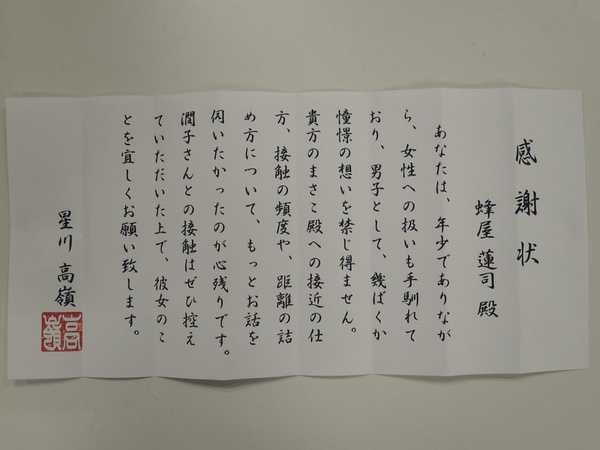 感謝状
蜂屋 蓮司 殿
あなたは、年少でありなが
ら、女性への扱いも手馴れて
おり、男子として、幾ばくか
憧憬の想いを禁じ得ません。
貴方のまさこ殿への接近の仕
方、接触の頻度や、距離の詰
め方について、もっとお話を
伺いたかったのが心残りです。
潤子さんとの接触はぜひ控え
ていただいた上で、彼女のこ
とを宜しくお願い致します。
星川 高嶺
高嶺